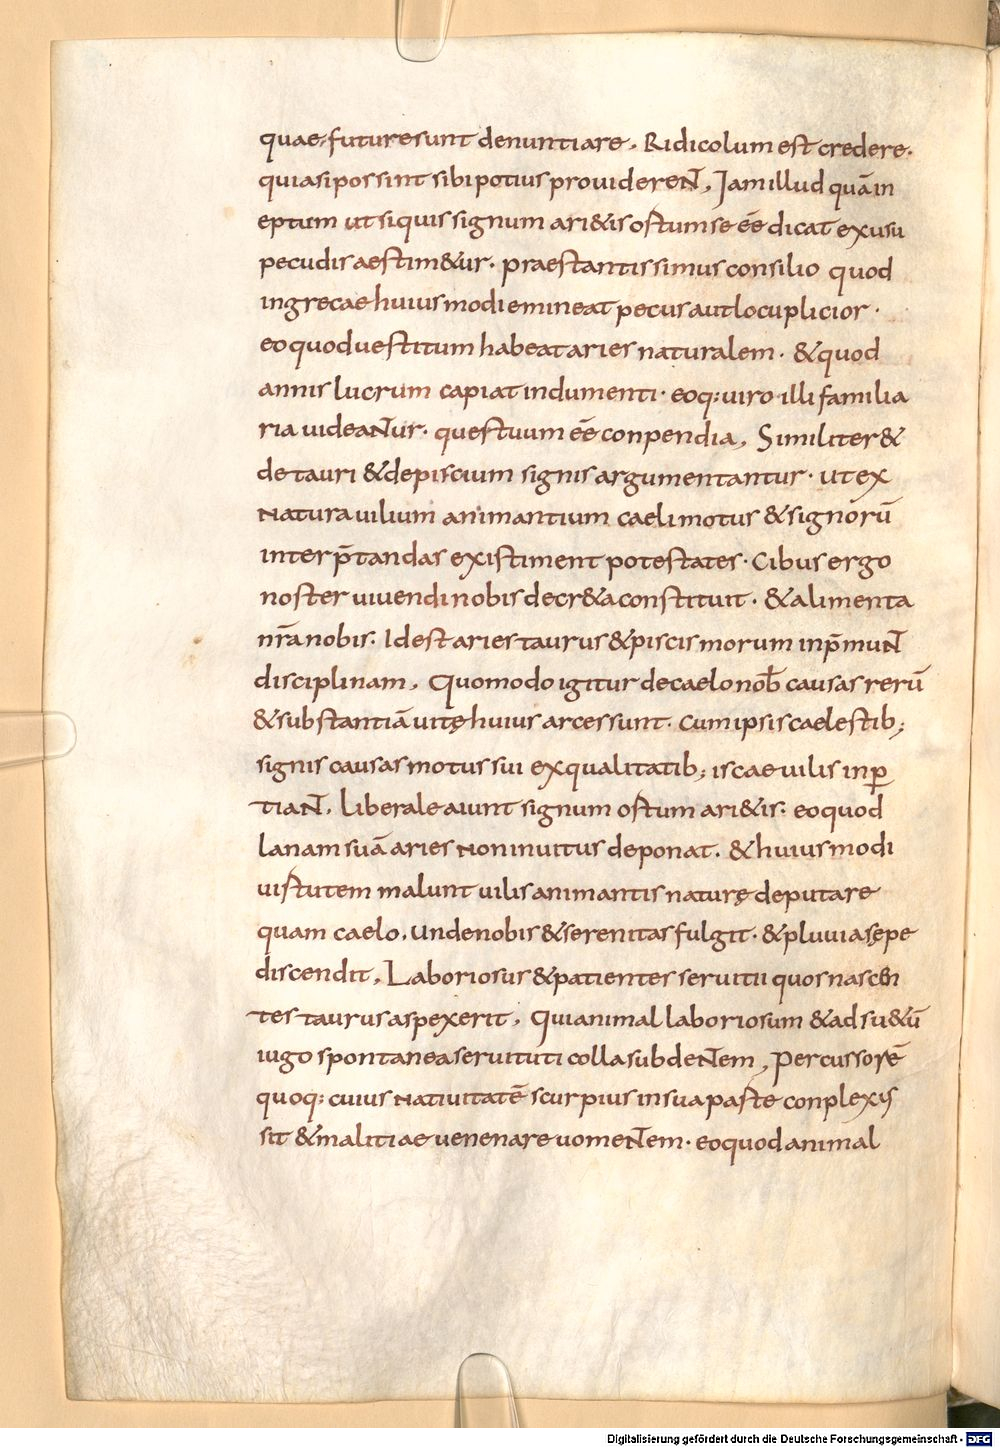 quae futuresunt denuntiare. Ridicolum est credere.
quiasi possint sibi potius prouiderenT, Jam illud quā in
eptum ut siquis signum ari&is ostum se eē dicat ex usu
pecudis aestim&ur. praestantissimus consilio quod
in grecae huiusmodi emineat pecus aut locuplicior.
eo quod uestitum habeat aries naturalem. & quod
annis lucrum capiat indumenti. eoq: uiro illi familia
ria uideaNur. questuum eē conpendia, Similiter &
de tauri & de piscium signis argumentantur. ut ex
natura uilium animantium caeli motus & signorū
interp̄tandas existiment potestates. Cibus ergo
noster uiuendi nobis decr&a constituit. & alimenta
nr̄a nobis. Id est aries taurus & piscis morum inp̄muNT
disciplinam, Quomodo igitur de caelo nob̄ causas rerū
& substantiā uitę huius arcessunt. cum ipsis caelestib;
signis causas motus sui ex qualitatib; iscae uilis inp̱
tiaNT. Liberale aiunt signum ostum ari&is. eo quod
lanam suā aries non inuitus deponat. & huiusmodi
uistutem malunt uilis animantis naturę deputare
quam caelo. unde nobis & serenitas fulgit. & pluuia sępe
discendit, Laboriosus & patientes seruitii quos nascen
tes taurus aspexerit, Qui animal laboriosum & ad su&ū
iugo spontanea seruituti colla subdeNTem, Percussorē
quoq: cuius natiuitatē scurpius in sua paste conplexis
sit & malitiae uenenare uomeNTem. eo quod animal
Digitalisierung gefördert durch die Deutsche Forschungsgemeinschaft - DFG